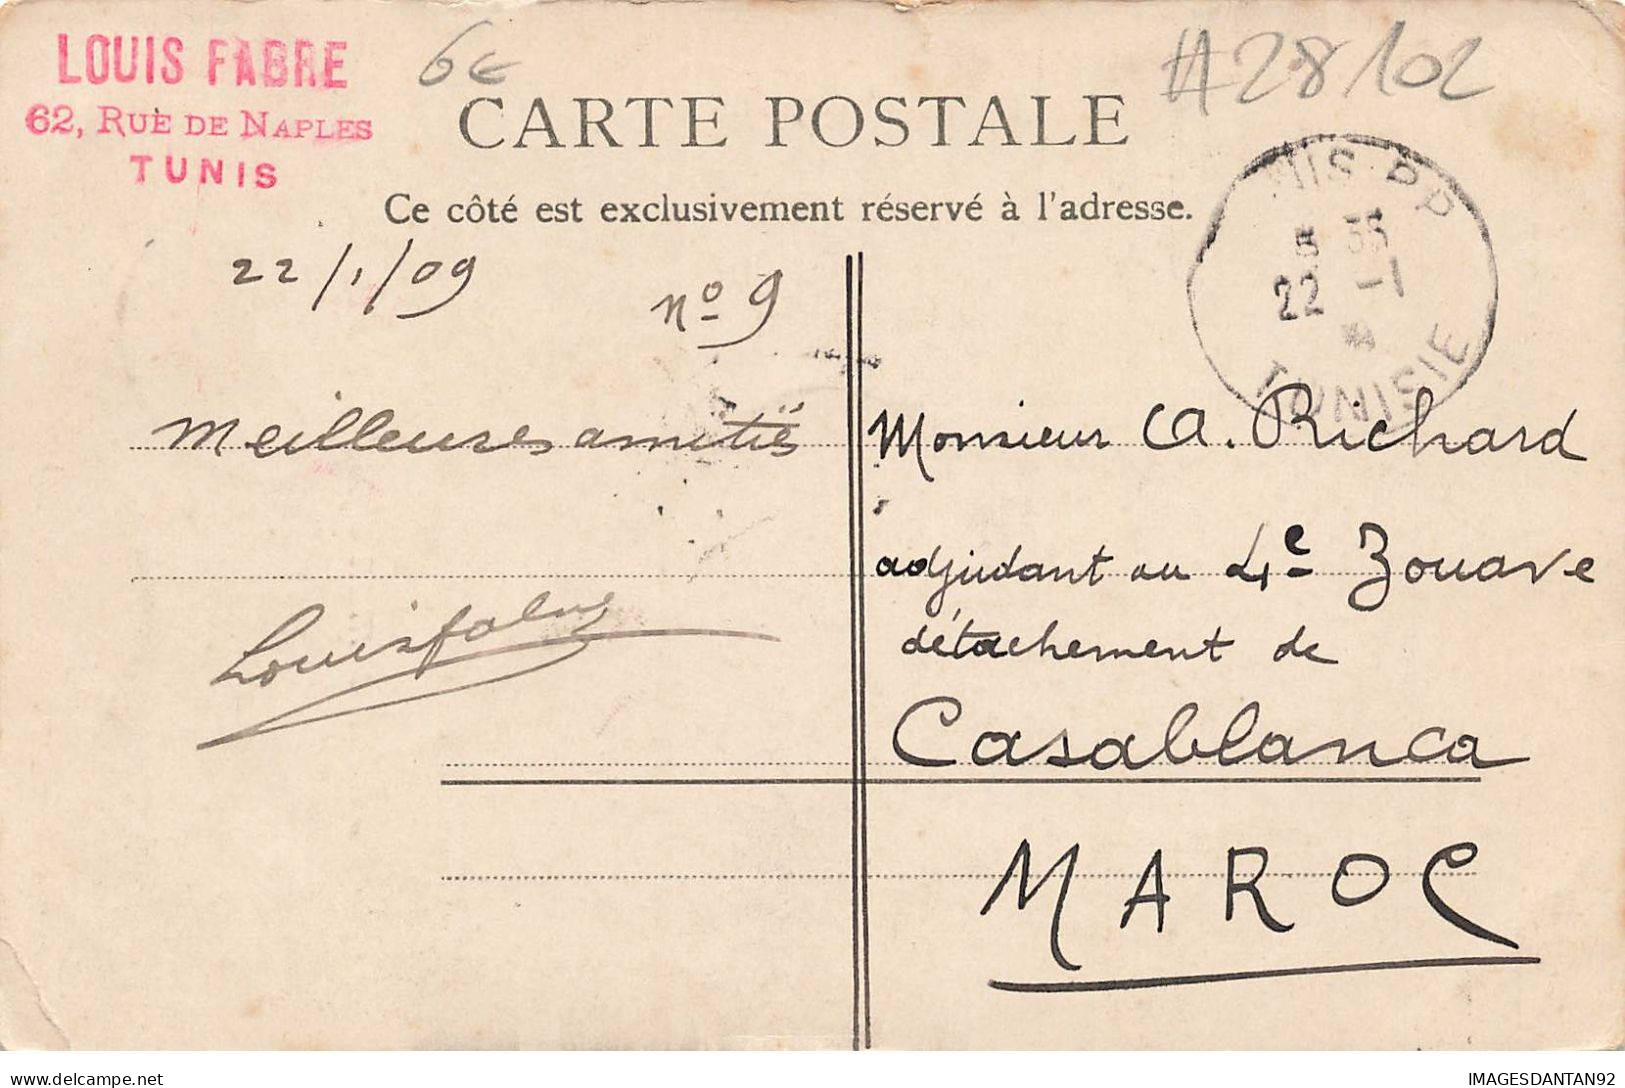 LOUIS FABRE
62, RUE DE NAPLES
TUNIS
6€
#28102
CARTE POSTALE
Ce côté est exclusivement réservé à l'adresse.
NIS-R.P
5 35
22 -1
TUNISIE
22/1/09
nº 9
Meilleuses amitiés
Louis Fabre
Monsieur A. Richard
adjudant au 4e Zouave
détachement de
Casablanca
MAROC
delcampe.net
IMAGESDANTAN92